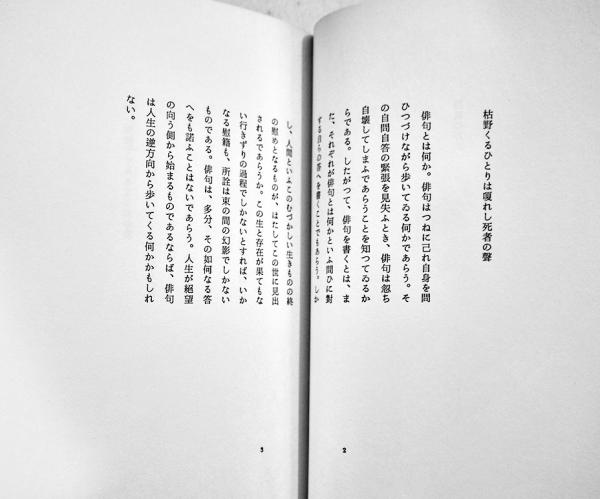 枯野くるひとりは嗄れし死者の聲
俳句とは何か。俳句はつねに己れ自身を問
ひつづけながら歩いてゐる何かであらう。そ
の自問自答の緊張を見失ふとき、俳句は忽ち
自壊してしまふであらうことを知つてゐるか
らである。したがつて、俳句を書くとは、ま
た、それぞれが俳句とは何かといふ問ひに對
する自らの答へを書くことでもあらう。しか
し、人間といふこのむづかしい生きものの終
の慰めとなるものが、はたしてこの世に見出
されるであらうか。この生と存在が果てもな
い行きずりの過程でしかないとすれば、いか
なる慰藉も、所詮は束の間の幻影でしかない
ものである。俳句は、多分、その如何なる答
へをも諾ふことはないであらう。人生が絶望
の向う側から始まるものであるならば、俳句
は人生の逆方向から歩いてくる何かかもしれ
ない。
2
3